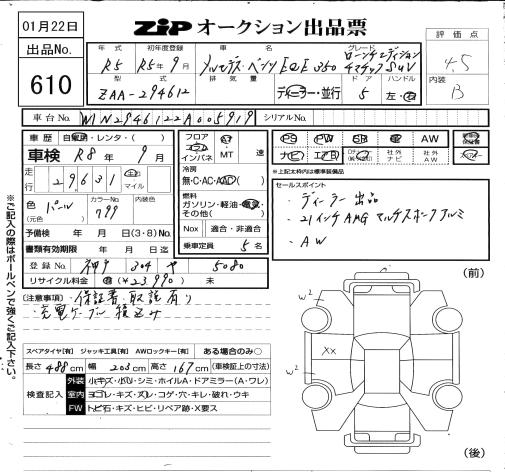 01月22日
ZIP オークション出品票
出品No.
610
評価点
4.5
内装
B
年式 初年度登録 車名 グレード
R5 R5年9月 メルセデス・ベンツ EQE 350 ローンチエディション 4マチック SUV
型式 排気量 ドア ハンドル
ZAA-294612 ディーラー・並行 5 左・右
車台No. W1N2946122A005919 シリアルNo.
車歴 自家用・レンタ・( )
車検 R8年 9月
走行 29,631 km マイル
色 (元色) パール カラーNo. 799 内装色
予備検 年 月 日(3・8)No.
書類有効期限 年 月 日迄
登録No. 神戸 304 や 5080
リサイクル料金 済(¥23,990) 未
フロア コラム インパネ AT MT 速
冷房 無・C・AC・AAC( )
燃料 ガソリン・軽油・電気 その他( )
Nox 適合・非適合
乗車定員 5名
PS PW SR 革 AW
ナビ エアB 社外ナビ 社外AW
※上記太枠内は標準装備品
セールスポイント
・ディーラー出品
・21インチAMG マルチスポークアルミ
・AW
(注意事項)・保証書・取説有り
・充電ケーブル積込み
※ご記入の際はボールペンで強くご記入下さい。
スペアタイヤ【有】 ジャッキ工具【有】 AWロックキー【有】 ある場合のみ○
長さ 488cm 幅 203cm 高さ 167cm (車検証上の寸法)
検査記入
外装 小キズ・小凹・シミ・ホイルA・ドアミラー(A・ワレ)
室内 ヨゴレ・キズ・スレ・コゲ・穴・キレ・破れ・ウキ
FW トビ石・キズ・ヒビ・リペア跡・X要ス
(前)
W2
Xx
W2
(後)